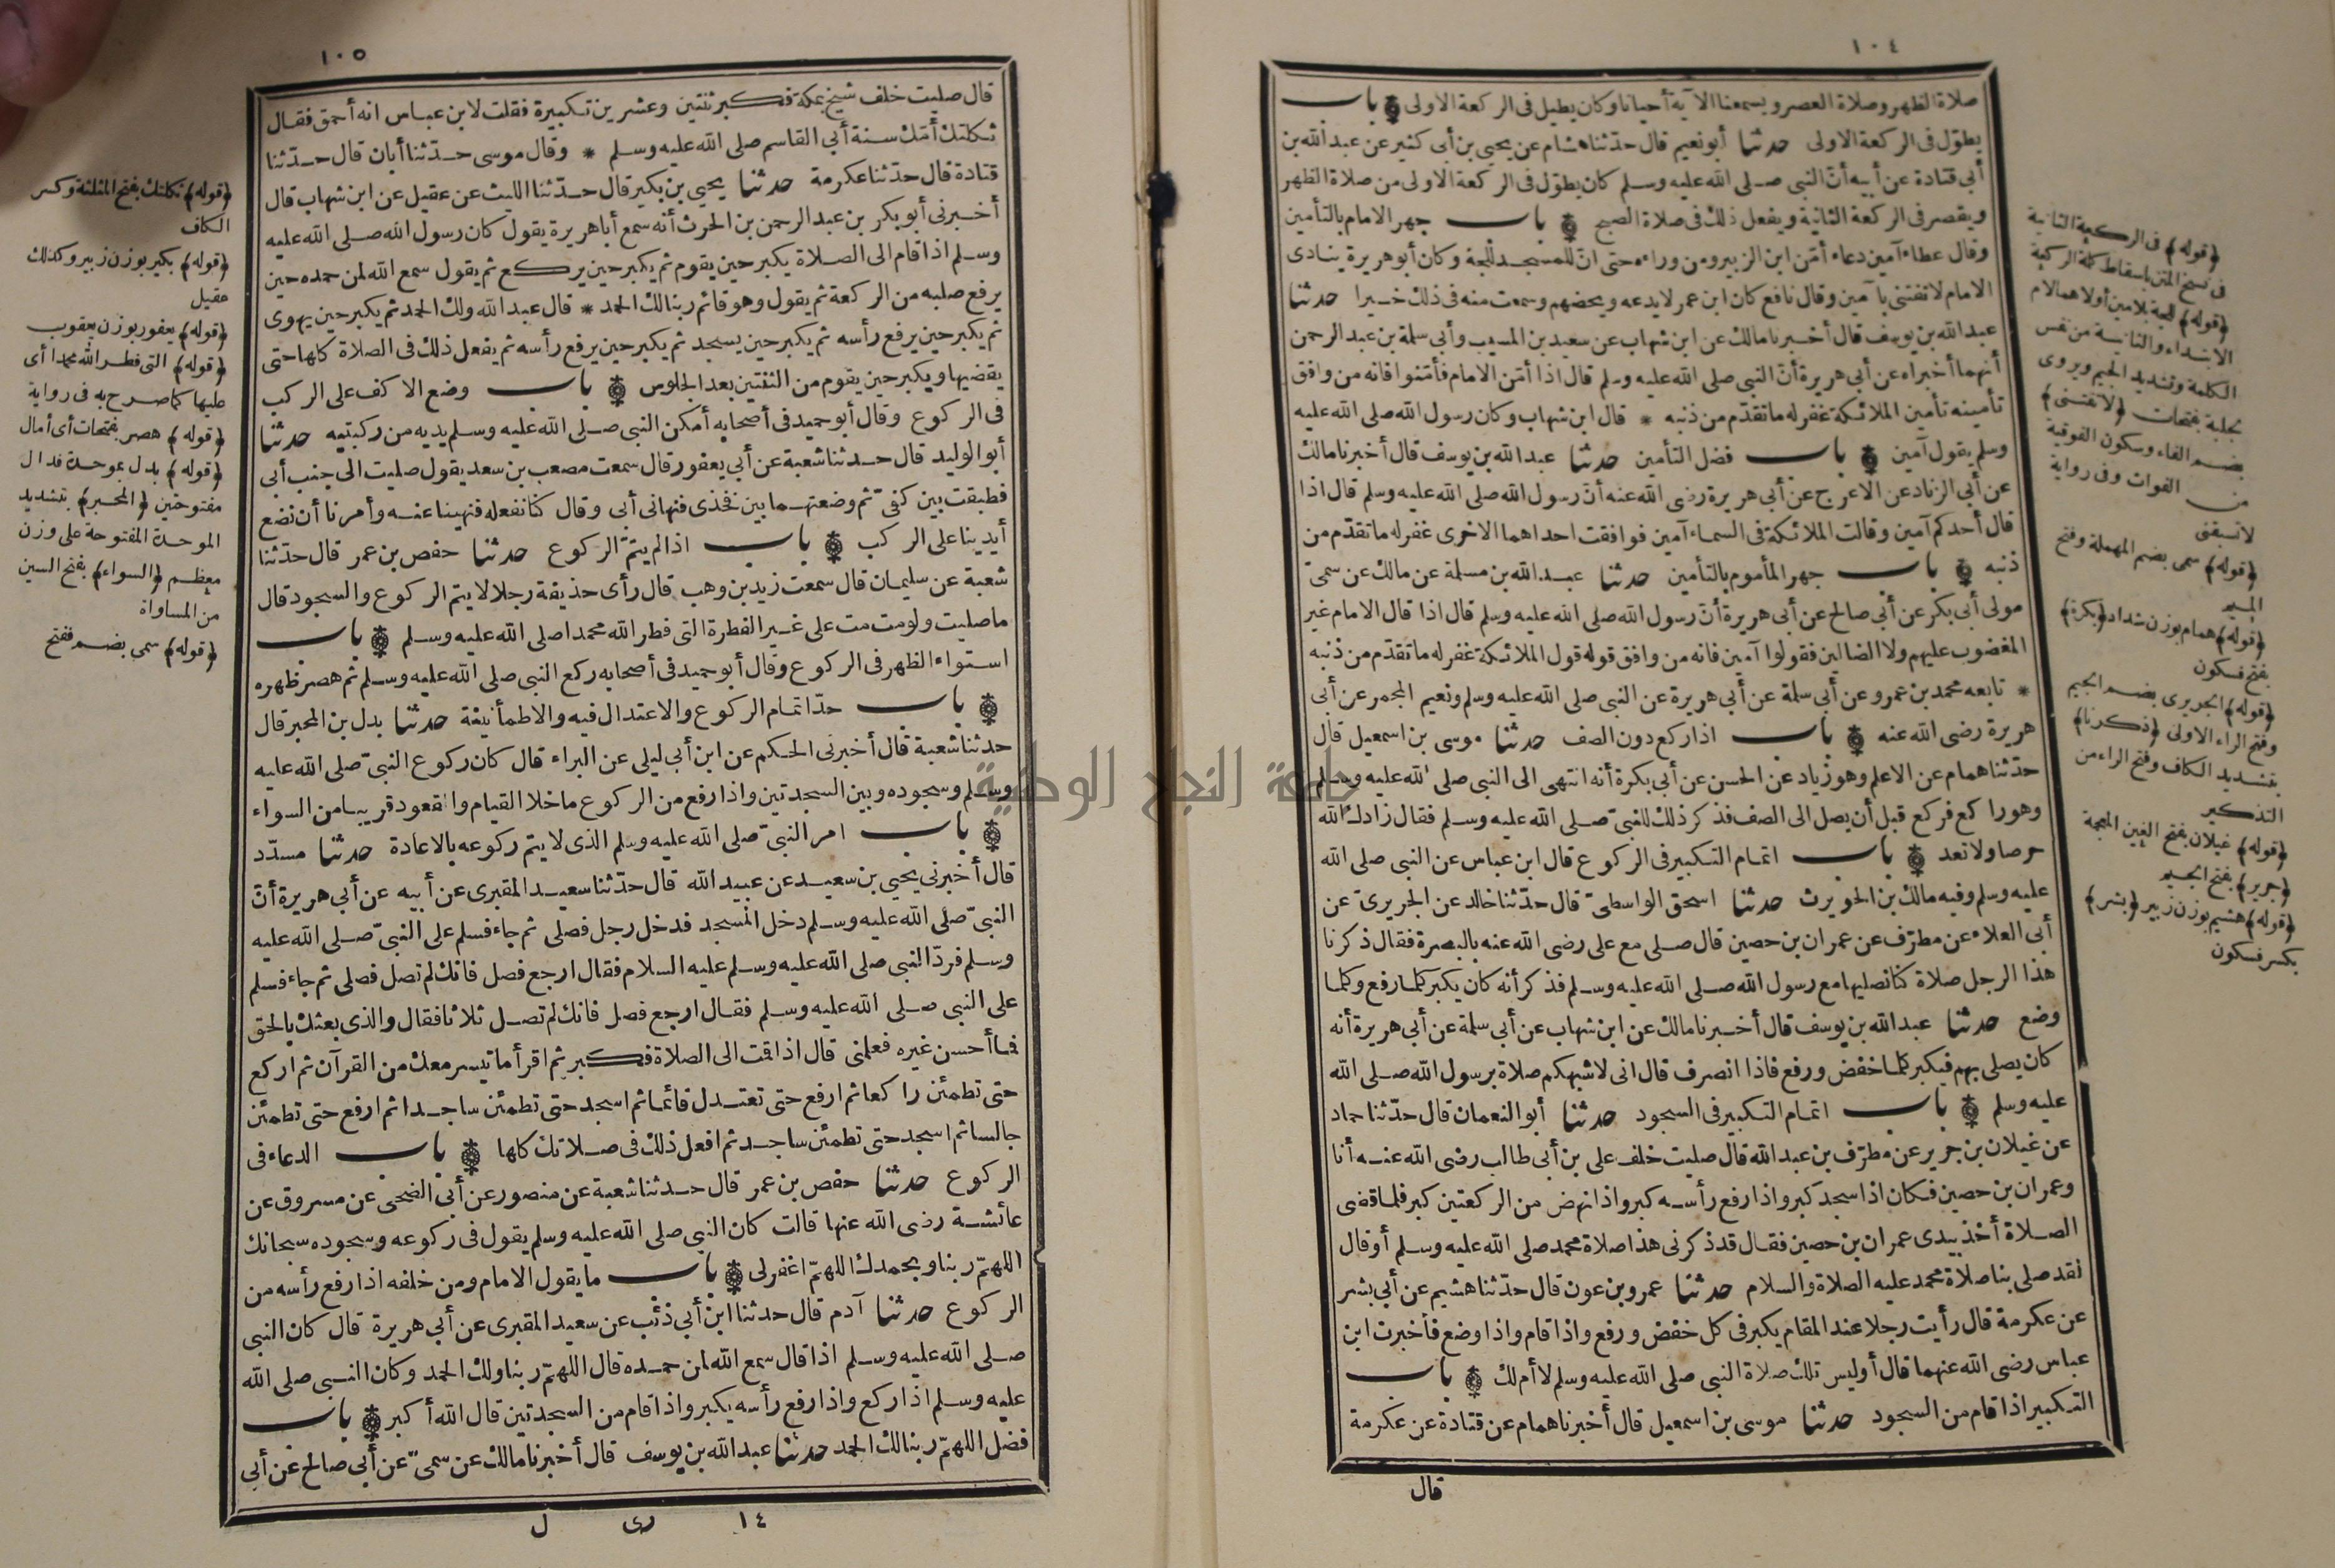 ١٠٤
صلاة الظهر وصلاة العصر ويسمعنا الآية أحيانا وكان يطيل فى الركعة الاولى باب
يطوّل فى الركعة الاولى حدثنا أبو نعيم قال حدّثنا هشام عن يحيى بن أبى كثير عن عبد الله بن
أبى قتادة عن أبيه أنّ النبى صلى الله عليه وسلم كان يطوّل فى الركعة الاولى من صلاة الظهر
ويقصر فى الركعة الثانية ويفعل ذلك فى صلاة الصبح باب جهر الامام بالتأمين
وقال عطاء آمين دعاء أمّن ابن الزبير ومن وراءه حتى انّ للمسجد للجة وكان أبو هريرة ينادى
الامام لا تفتنى بآمين وقال نافع كان ابن عمر لا يدعه ويحضهم وسمعت منه فى ذلك خيرا حدثنا
عبد الله بن يوسف قال أخبرنا مالك عن ابن شهاب عن سعيد بن المسيب وأبى سلمة بن عبد الرحمن
أنهما أخبراه عن أبى هريرة أنّ النبى صلى الله عليه وسلم قال اذا أمّن الامام فأمّنوا فانه من وافق
تأمينه تأمين الملائكة غفر له ماتقدّم من ذنبه * قال ابن شهاب وكان رسول الله صلى الله عليه
وسلم يقول آمين باب فضل التأمين حدثنا عبد الله بن يوسف قال أخبرنا مالك
عن أبى الزناد عن الاعرج عن أبى هريرة رضى الله عنه أنّ رسول الله صلى الله عليه وسلم قال اذا
قال أحدكم آمين وقالت الملائكة فى السماء آمين فوافقت احداهما الاخرى غفر له ماتقدّم من
ذنبه باب جهر المأموم بالتأمين حدثنا عبد الله بن مسلمة عن مالك عن سمىّ
مولى أبى بكر عن أبى صالح عن أبى هريرة أنّ رسول الله صلى الله عليه وسلم قال اذا قال الامام غير
المغضوب عليهم ولا الضالين فقولوا آمين فانه من وافق قوله قول الملائكة غفر له ماتقدّم من ذنبه
* تابعه محمد بن عمرو عن أبى سلمة عن أبى هريرة عن النبى صلى الله عليه وسلم ونعيم المجمر عن أبى
هريرة رضى الله عنه باب اذا ركع دون الصف حدثنا موسى بن اسمعيل قال
حدّثنا همام عن الاعلم وهو زياد عن الحسن عن أبى بكرة أنه انتهى الى النبى صلى الله عليه وسلم
وهو راكع فركع قبل أن يصل الى الصف فذكر ذلك للنبىّ صلى الله عليه وسلم فقال زادك الله
حرصا ولا تعد باب اتمام التكبير فى الركوع قال ابن عباس عن النبى صلى الله
عليه وسلم وفيه مالك بن الحويرث حدثنا اسحق الواسطىّ قال حدّثنا خالد عن الجريرىّ عن
أبى العلاء عن مطرّف عن عمران بن حصين قال صلى مع على رضى الله عنه بالبصرة فقال ذكرنا
هذا الرجل صلاة كنا نصليها مع رسول الله صلى الله عليه وسلم فذكر أنه كان يكبر كلما رفع وكلما
وضع حدثنا عبد الله بن يوسف قال أخبرنا مالك عن ابن شهاب عن أبى سلمة عن أبى هريرة أنه
كان يصلى بهم فيكبر كلما خفض ورفع فاذا انصرف قال انى لاشبهكم صلاة برسول الله صلى الله
عليه وسلم باب اتمام التكبير فى السجود حدثنا أبو النعمان قال حدّثنا حماد
عن غيلان بن جرير عن مطرّف بن عبد الله قال صليت خلف على بن أبى طالب رضى الله عنه أنا
وعمران بن حصين فكان اذا سجد كبر واذا رفع رأسه كبر واذا نهض من الركعتين كبر فلما قضى
الصلاة أخذ بيدى عمران بن حصين فقال قد ذكرنى هذا صلاة محمد صلى الله عليه وسلم أو قال
لقد صلى بنا صلاة محمد عليه الصلاة والسلام حدثنا عمرو بن عون قال حدّثنا هشيم عن أبى بشر
عن عكرمة قال رأيت رجلا عند المقام يكبر فى كل خفض ورفع واذا قام واذا وضع فأخبرت ابن
عباس رضى الله عنهما قال أوليس تلك صلاة النبى صلى الله عليه وسلم لا أم لك باب
التكبير اذا قام من السجود حدثنا موسى بن اسمعيل قال أخبرنا همام عن قتادة عن عكرمة
قال
(قوله) فى الركعة الثانية
فى نسخ المتن باسقاط كلمة الركعة
(قوله) للجة بلامين أولاهما لام
الابتداء والثانية من نفس
الكلمة وتشديد الجيم ويروى
لجلبة بفتحات (لا تفتنى)
بضم الفاء وسكون الفوقية
من الفوات وفى رواية
لا تسبقنى
(قوله) سمى بضم المهملة وفتح
الميم
(قوله) همام بوزن شداد (بكرة)
بفتح فسكون
(قوله) الجريرى بضم الجيم
وفتح الراء الاولى (ذكرنا)
بتشديد الكاف وفتح الراء من
التذكير
(قوله) غيلان بفتح الغين المعجمة
(جرير) بفتح الجيم
(قوله) هشيم بوزن زبير (بشر)
بكسر فسكون
١٠٥
قال صليت خلف شيخ بمكة فكبر ثنتين وعشرين تكبيرة فقلت لابن عباس انه أحمق فقال
ثكلتك أمّك سنة أبى القاسم صلى الله عليه وسلم * وقال موسى حدّثنا أبان قال حدّثنا
قتادة قال حدّثنا عكرمة حدثنا يحيى بن بكير قال حدّثنا الليث عن عقيل عن ابن شهاب قال
أخبرنى أبو بكر بن عبد الرحمن بن الحرث أنه سمع أبا هريرة يقول كان رسول الله صلى الله عليه
وسلم اذا قام الى الصلاة يكبر حين يقوم ثم يكبر حين يركع ثم يقول سمع الله لمن حمده حين
يرفع صلبه من الركعة ثم يقول وهو قائم ربنا لك الحمد * قال عبد الله ولك الحمد ثم يكبر حين يهوى
ثم يكبر حين يرفع رأسه ثم يكبر حين يسجد ثم يكبر حين يرفع رأسه ثم يفعل ذلك فى الصلاة كلها حتى
يقضيها ويكبر حين يقوم من الثنتين بعد الجلوس باب وضع الاكف على الركب
فى الركوع وقال أبو حميد فى أصحابه أمكن النبى صلى الله عليه وسلم يديه من ركبتيه حدثنا
أبو الوليد قال حدثنا شعبة عن أبى يعفور قال سمعت مصعب بن سعد يقول صليت الى جنب أبى
فطبقت بين كفىّ ثم وضعتهما بين فخذى فنهانى أبى وقال كنا نفعله فنهينا عنه وأمرنا أن نضع
أيدينا على الركب باب اذا لم يتمّ الركوع حدثنا حفص بن عمر قال حدّثنا
شعبة عن سليمان قال سمعت زيد بن وهب قال رأى حذيفة رجلا لا يتم الركوع والسجود قال
ما صليت ولو مت مت على غير الفطرة التى فطر الله محمدا صلى الله عليه وسلم باب
استواء الظهر فى الركوع وقال أبو حميد فى أصحابه ركع النبى صلى الله عليه وسلم ثم هصر ظهره
باب حدّ اتمام الركوع والاعتدال فيه والاطمأنينة حدثنا بدل بن المحبر قال
حدثنا شعبة قال أخبرنى الحكم عن ابن أبى ليلى عن البراء قال كان ركوع النبىّ صلى الله عليه
وسلم وسجوده وبين السجدتين واذا رفع من الركوع ماخلا القيام والقعود قريبا من السواء
باب امر النبىّ صلى الله عليه وسلم الذى لا يتم ركوعه بالاعادة حدثنا مسدّد
قال أخبرنى يحيى بن سعيد عن عبيد الله قال حدّثنا سعيد المقبرى عن أبيه عن أبى هريرة أنّ
النبىّ صلى الله عليه وسلم دخل المسجد فدخل رجل فصلى ثم جاء فسلم على النبىّ صلى الله عليه
وسلم فردّ النبى صلى الله عليه وسلم عليه السلام فقال ارجع فصل فانك لم تصل فصلى ثم جاء فسلم
على النبى صلى الله عليه وسلم فقال ارجع فصل فانك لم تصل ثلاثا فقال والذى بعثك بالحق
فما أحسن غيره فعلمنى قال اذا قمت الى الصلاة فكبر ثم اقرأ ما تيسر معك من القرآن ثم اركع
حتى تطمئن راكعا ثم ارفع حتى تعتدل قائما ثم اسجد حتى تطمئن ساجدا ثم ارفع حتى تطمئن
جالسا ثم اسجد حتى تطمئن ساجد ثم افعل ذلك فى صلاتك كلها باب الدعاء فى
الركوع حدثنا حفص بن عمر قال حدثنا شعبة عن منصور عن أبى الضحى عن مسروق عن
عائشة رضى الله عنها قالت كان النبى صلى الله عليه وسلم يقول فى ركوعه وسجوده سبحانك
اللهمّ ربنا وبحمدك اللهمّ اغفر لى باب ما يقول الامام ومن خلفه اذا رفع رأسه من
الركوع حدثنا آدم قال حدثنا ابن أبى ذئب عن سعيد المقبرى عن أبى هريرة قال كان النبى
صلى الله عليه وسلم اذا قال سمع الله لمن حمده قال اللهمّ ربنا ولك الحمد وكان النبى صلى الله
عليه وسلم اذا ركع واذا رفع رأسه يكبر واذا قام من السجدتين قال الله أكبر باب
فضل اللهمّ ربنا لك الحمد حدثنا عبد الله بن يوسف قال أخبرنا مالك عن سمىّ عن أبى صالح عن أبى
١٤ رى ل
(قوله) ثكلتك بفتح المثلثة وكسر
الكاف
(قوله) بكير بوزن زبير وكذلك
عقيل
(قوله) يعفور بوزن يعقوب
(قوله) التى فطر الله محمدا أى
عليها كما صرح به فى رواية
(قوله) هصر بفتحات أى أمال
(قوله) بدل بموحدة فدال
مفتوحتين (المحبر) بتشديد
الموحدة المفتوحة على وزن
معظم (السواء) بفتح السين
من المساواة
(قوله) سمى بضم ففتح
جامعة النجاح الوطنية